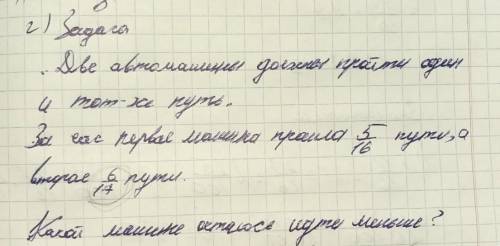 г) Задача
. Две автомашины должны пройти один
и тот-же путь.
За час первая машина прошла 5/16 пути, а
вторая 6/17 пути.
Какой машине осталось идти меньше?